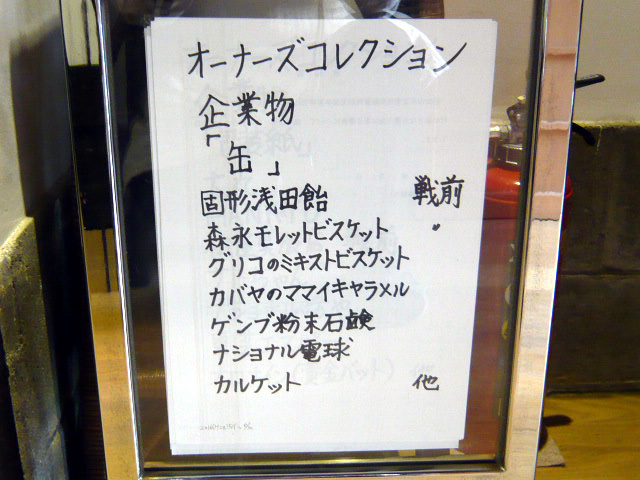 オーナーズコレクション
企業物
「缶」
固形浅田飴 戦前
森永モレットビスケット 〃
グリコのミキストビスケット
カバヤのママイキャラメル
ゲンブ粉末石鹸
ナショナル電球
カルケット 他